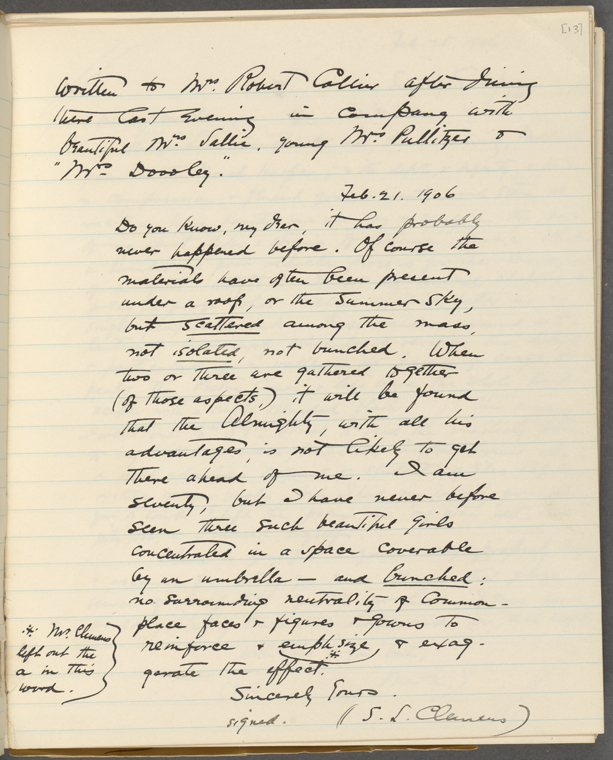 [13]
Written to Mrs Robert Collier after dining
there last evening in company with
beautiful Mrs Sallie, young Mrs Pullitzer &
"Mrs Dooley".
Feb. 21. 1906
Do you know, my dear, it has probably
never happened before. Of course the
materials have often been present
under a roof, or the summer sky,
but scattered among the mass,
not isolated, not bunched. When
two or three are gathered together
(of those aspects,) it will be found
that the Almighty, with all his
advantages, is not likely to get
there ahead of me. I am
seventy, but I have never before
seen three such beautiful girls
concentrated in a space coverable
by an umbrella — and bunched:
no surrounding neutrality of Common-
place faces & figures & gowns to
reinforce & emphsize, & exag-
gerate the effect.
Sincerely Yours.
signed. (S. L. Clemens)
Mr. Clemens
left out the
a in this
word.